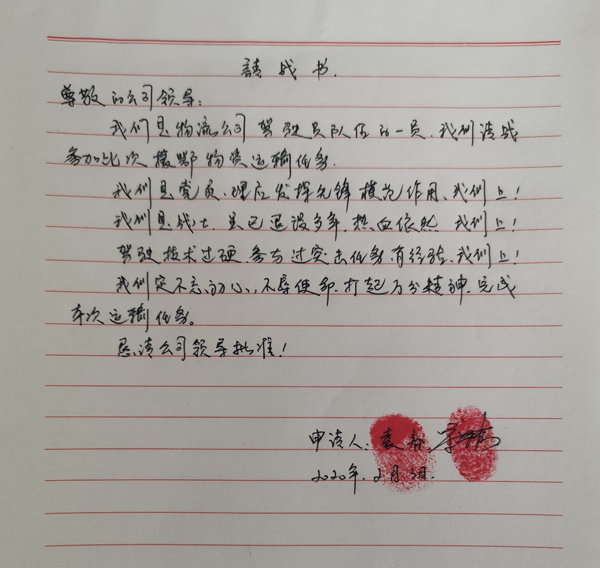 請战书.
尊敬的公司领导:
我们是物流公司驾驶员队伍的一员.我们请战
参加此次援鄂物资运输任务.
我们是党员.理应发挥先锋模范作用、我们上!
我们是战士.虽已退役多年.热血依然.我们上!
驾驶技术过硬.参与过突击任务有经验.我们上!
我们定不忘初心,不辱使命.打起万分精神.完成
本次运输任务。
恳请公司领导批准!
申请人:袁春
2020年.2月3日.